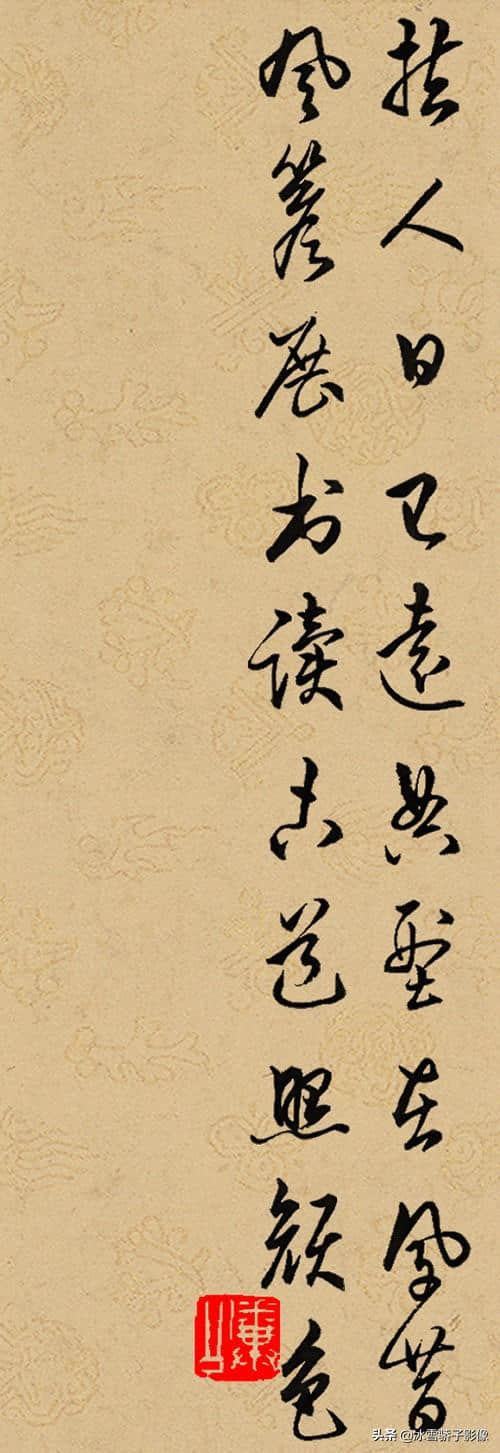 哲人日已遠典型在夙昔
风簷展书读古道照颜色
头条 @冰雪骄子影像